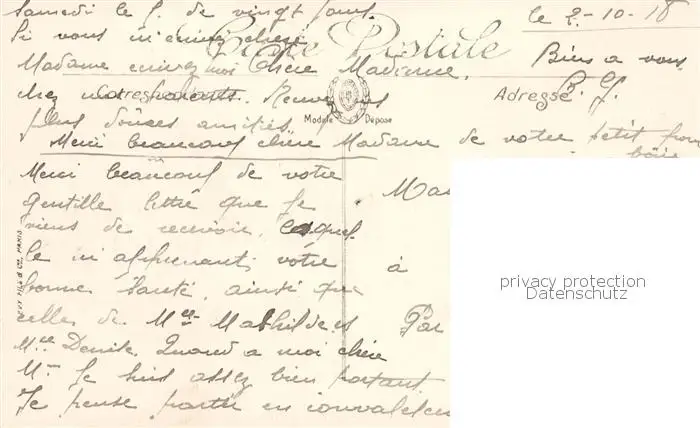 le 2-10-18
Samedi le 5. de vingt jours.
Si vous m'écrivez chère
Madame écrivez moi
chez mes parents. Recevez
plus douces amitiés
Bien a vous
Carte Postale
Correspondance
Adresse
Modèle Déposé
Chère Madame,
Merci beaucoup chère Madame de votre petit
Merci beaucoup de votre
gentille lettre que je
viens de recevoir, laquel
le m'apprenant, votre
bonne santé, ainsi que
celles de Mlle Mathilde et
Mlle Denise. Quand a moi chère
Me je suis assez bien portant
Je pense partir en convalescen
à
Par
LEVY FILS & Cie, PARIS
privacy protection
Datenschutz